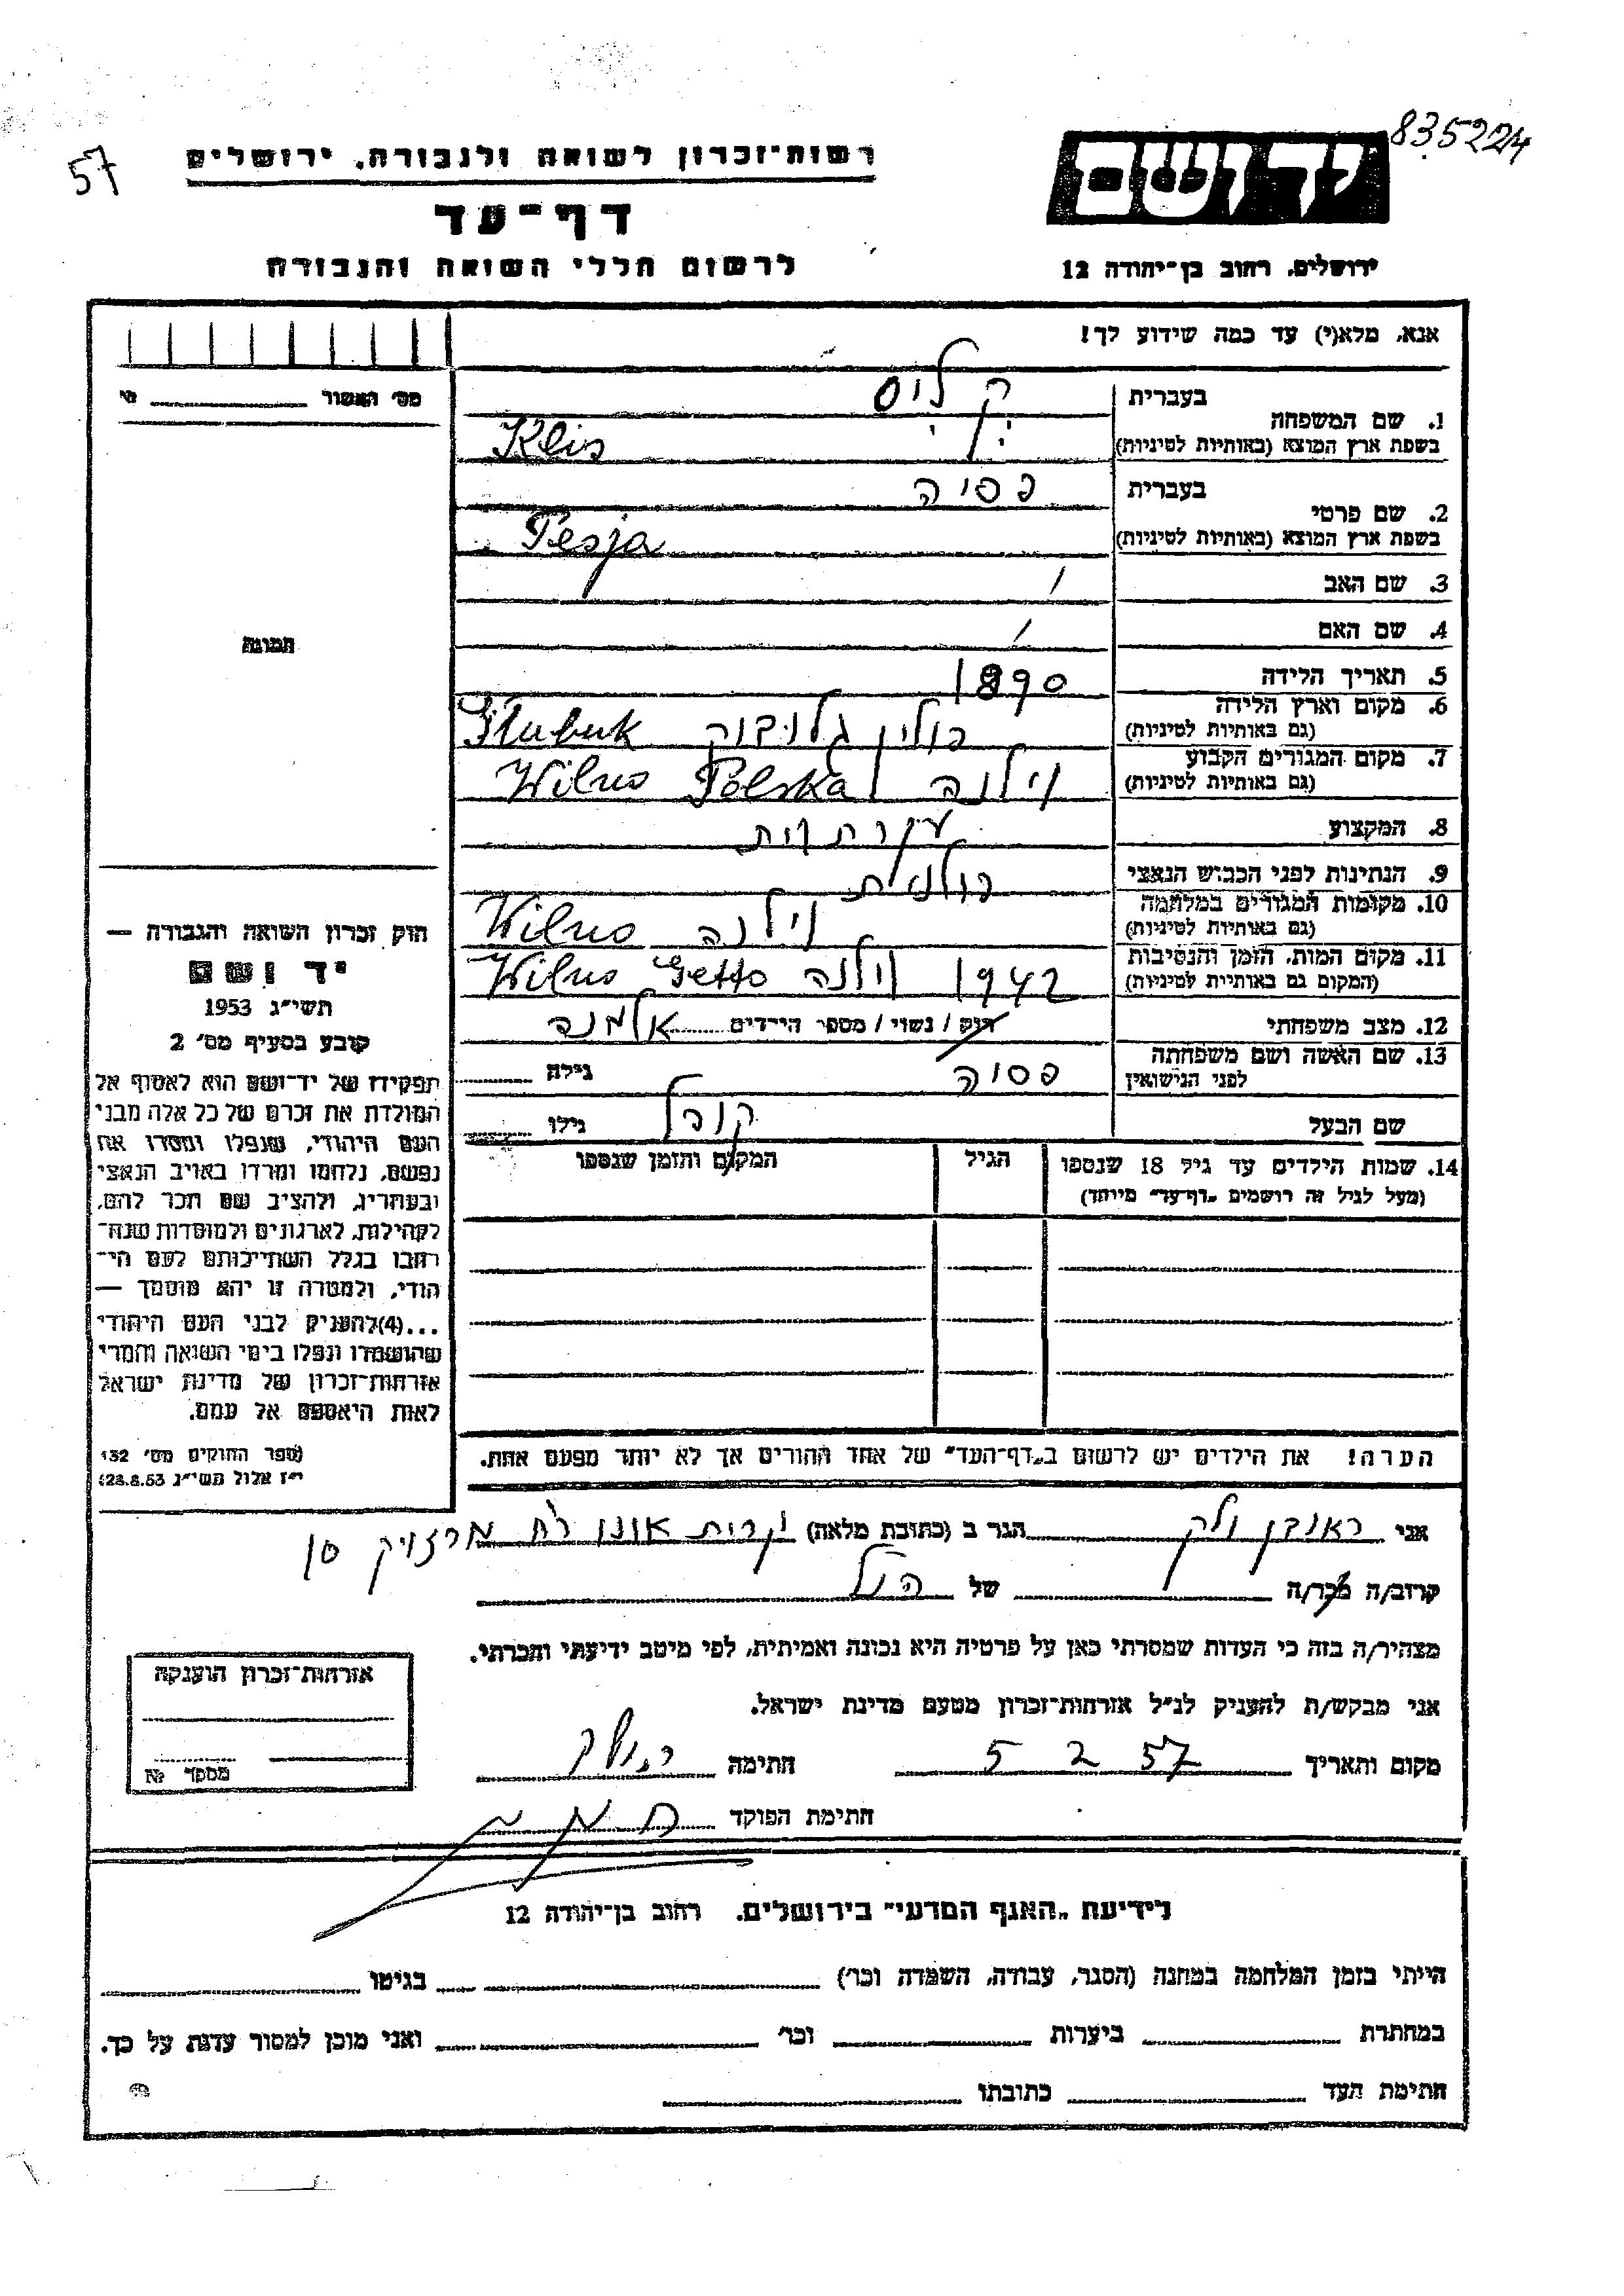 835224
57
רשות־זכרון לשואה ולגבורה, ירושלים
יד ושם
דף־עד
לרשום חללי השואה והגבורה
ירושלים, רחוב בן־יהודה 12
אנא, מלא(י) עד כמה שידוע לך!
מס׳ האשור
בעברית קליס
1. שם המשפחה
בשפת ארץ המוצא (באותיות לטיניות) Klis
בעברית פסיה
2. שם פרטי
בשפת ארץ המוצא (באותיות לטיניות) Pesja
3. שם האב /
4. שם האם /
תמונה
5. תאריך הלידה 1890
6. מקום וארץ הלידה
(גם באותיות לטיניות) פולין גלובוק Glubuk
7. מקום המגורים הקבוע
(גם באותיות לטיניות) וילנה Wilno Polska
8. המקצוע עקרת בית
9. הנתינות לפני הכבוש הנאצי פולנית
10. מקומות המגורים במלחמה
(גם באותיות לטיניות) וילנה Wilno
11. מקום המות, הזמן והנסיבות
(המקום גם באותיות לטיניות) 1942 וילנה Wilno Getto
12. מצב משפחתי רוק / נשוי / מספר הילדים אלמנה
13. שם האשה ושם משפחתה
לפני הנישואין פסיה גילה
שם הבעל גילו
14. שמות הילדים עד גיל 18 שנספו הגיל המקום והזמן שנספו
(מעל לגיל זה רושמים „דף־עד״ מיוחד)
הערה! את הילדים יש לרשום ב„דף־העד״ של אחד ההורים אך לא יותר מפעם אחת.
חוק זכרון השואה והגבורה —
יד ושם
תשי״ג 1953
קובע בסעיף מס׳ 2
תפקידו של יד־ושם הוא לאסוף אל
המולדת את זכרם של כל אלה מבני
העם היהודי, שנפלו ומסרו את
נפשם, נלחמו ומרדו באויב הנאצי
ובעוזריו, ולהציב שם וזכר להם,
לקהילות, לארגונים ולמוסדות שנח־
רבו בגלל השתייכותם לעם הי־
הודי, ולמטרה זו יהא מוסמך —
...(4)להעניק לבני העם היהודי
שהושמדו ונפלו בימי השואה והמרי
אזרחות־זכרון של מדינת ישראל
לאות היאספם אל עמם.
(ספר החוקים מס׳ 132
י״ז אלול תשי״ג 28.8.53)
אני ראובן ולק הגר ב (כתובת מלאה) קרית אונו רח
קרוב/ה מכר/ה של הנ״ל
מצהיר/ה בזה כי העדות שמסרתי כאן על פרטיה היא נכונה ואמיתית, לפי מיטב ידיעתי והכרתי.
אני מבקש/ת להעניק לנ״ל אזרחות־זכרון מטעם מדינת ישראל.
מקום ותאריך 5 2 57 חתימה
חתימת הפוקד
אזרחות־זכרון הוענקה
מספר №
לידיעת „האגף המדעי״ בירושלים, רחוב בן־יהודה 12
הייתי בזמן המלחמה במחנה (הסגר, עבודה, השמדה וכו׳) בגיטו
במחתרת ביערות וכו׳ ואני מוכן למסור עדות על כך.
חתימת העד כתובתו